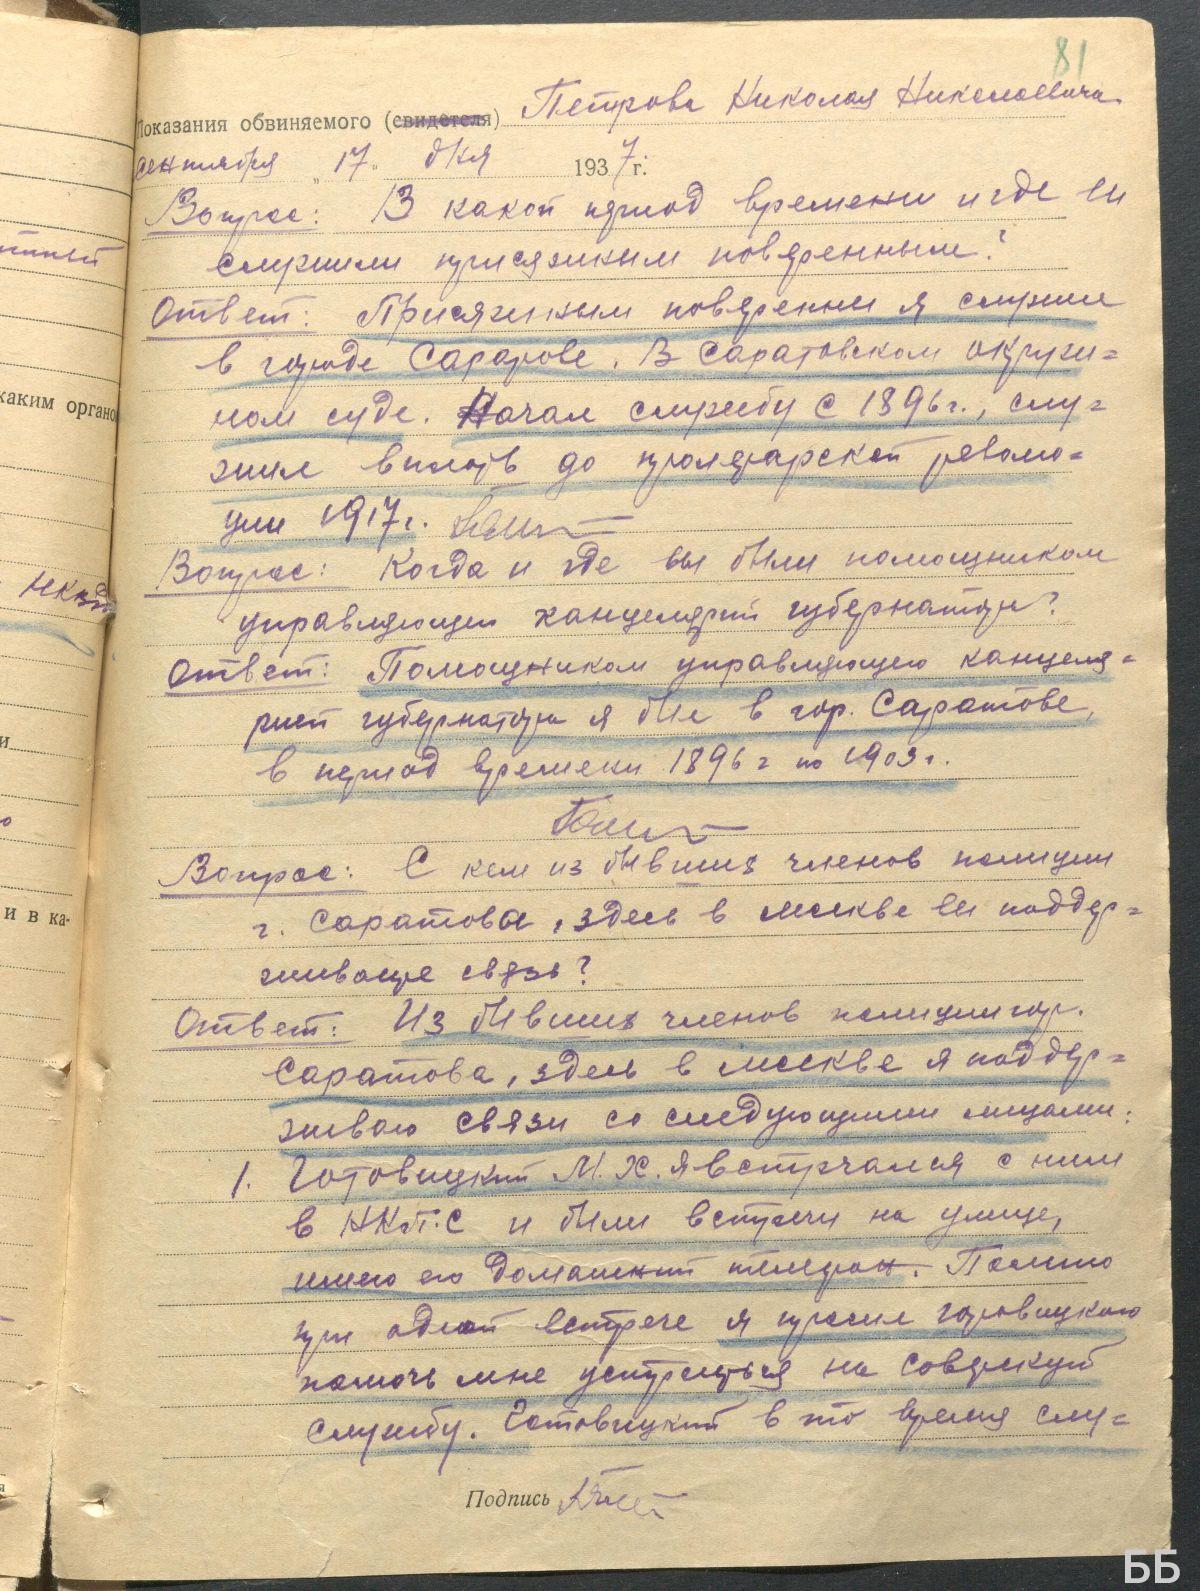 81
Показания обвиняемого (свидетеля) Петрова Николая Николаевича
сентября „17“ дня 1937г.
Вопрос: В какой период времени и где вы
служили присяжным поверенным?
Ответ: Присяжным поверенным я служил
в городе Саратове. В Саратовском окруж=
ном суде. Начал службу с 1896 г., слу=
жил вплоть до пролетарской револю=
ции 1917 г.
Вопрос: Когда и где вы были помощником
управляющего канцелярией губернатора?
Ответ: Помощником управляющего канцеля=
рией губернатора я был в гор. Саратове,
в период времени 1896 г по 1903 г.
Вопрос: С кем из бывших членов полиции
г. Саратова, здесь в Москве вы поддер=
живаете связь?
Ответ: Из бывших членов полиции гор.
Саратова, здесь в Москве я поддер=
живаю связи со следующими лицами:
1. Готовицкий М. Х. я встречался с ним
в НКПС и были встречи на улице,
имею его домашний телефон. Помню
при одной встрече я просил Готовицкого
помочь мне устроиться на советскую
службу. Готовицкий в то время слу=
Подпись
каким органо
НКВД
и
и в ка-
ББ